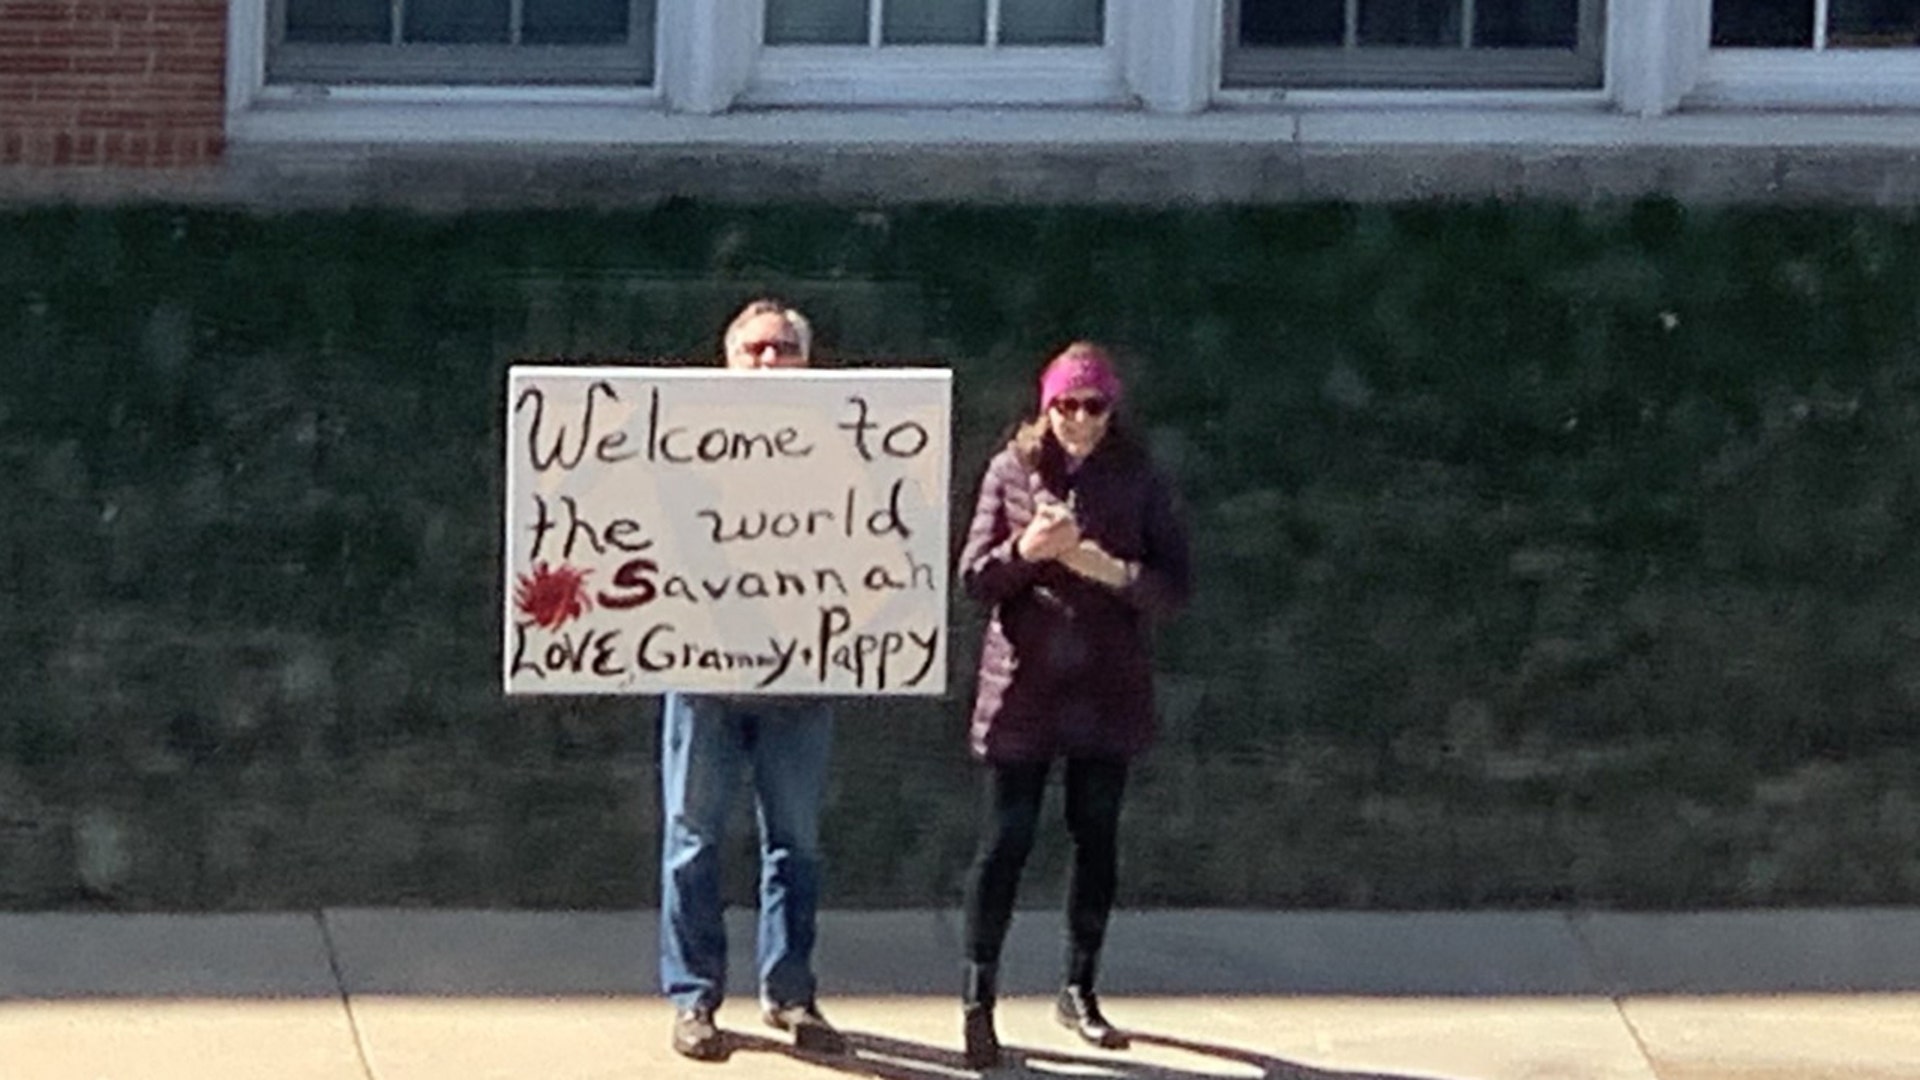 Welcome to
the world
Savannah
LOVE, Grammy + Pappy